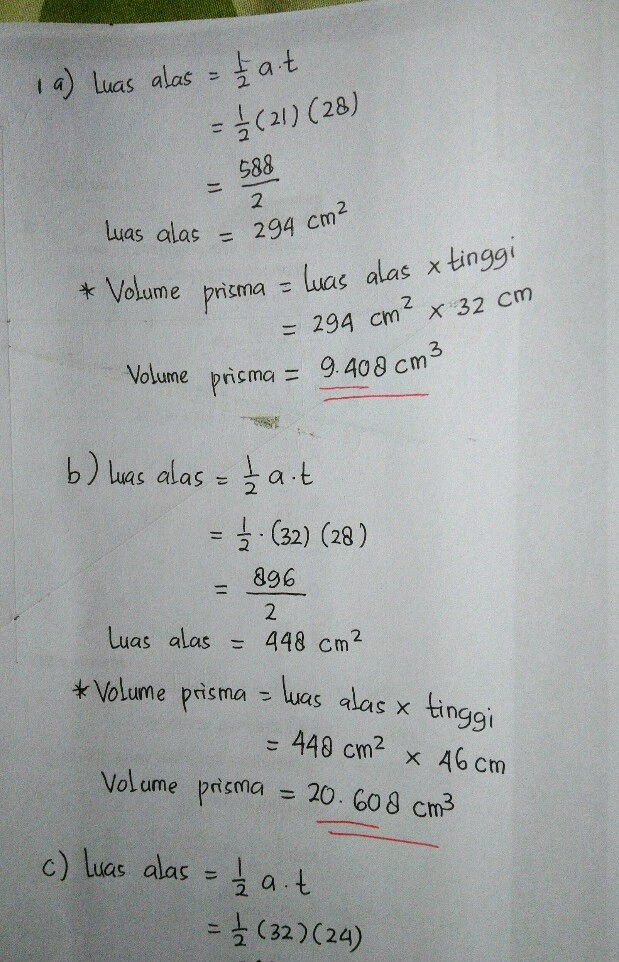 1 a) Luas alas = 1/2 a.t
= 1/2 (21) (28)
= 588/2
Luas alas = 294 cm²
* Volume prisma = Luas alas x tinggi
= 294 cm² x 32 cm
Volume prisma = 9.408 cm³
b) Luas alas = 1/2 a.t
= 1/2 . (32) (28)
= 896/2
Luas alas = 448 cm²
* Volume prisma = Luas alas x tinggi
= 448 cm² x 46 cm
Volume prisma = 20.608 cm³
c) Luas alas = 1/2 a.t
= 1/2 (32) (24)